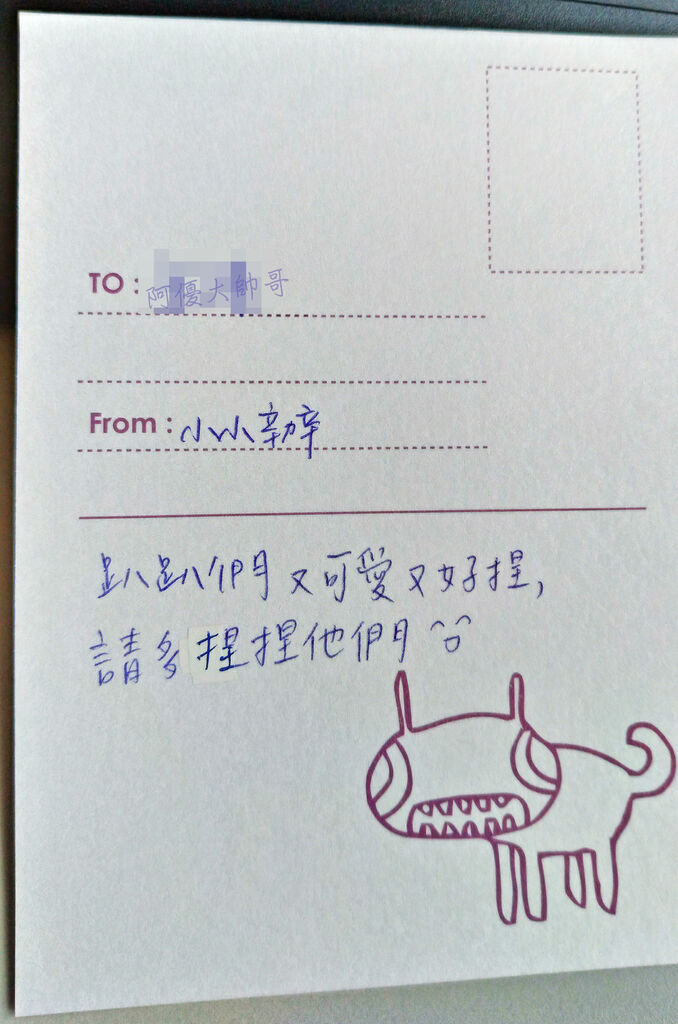 TO : 阿優大帥哥
From : 小小辦
趴趴們又可愛又好捏,
請多捏捏他們